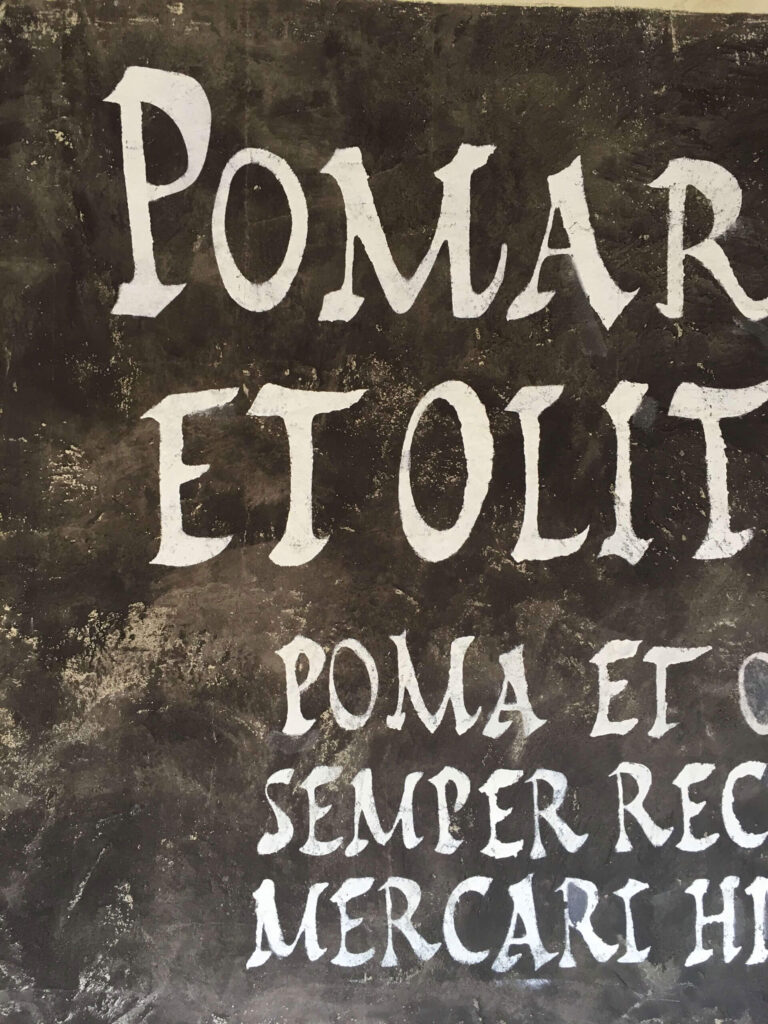 POMAR
ET OLIT
POMA ET O
SEMPER REC
MERCARI HI